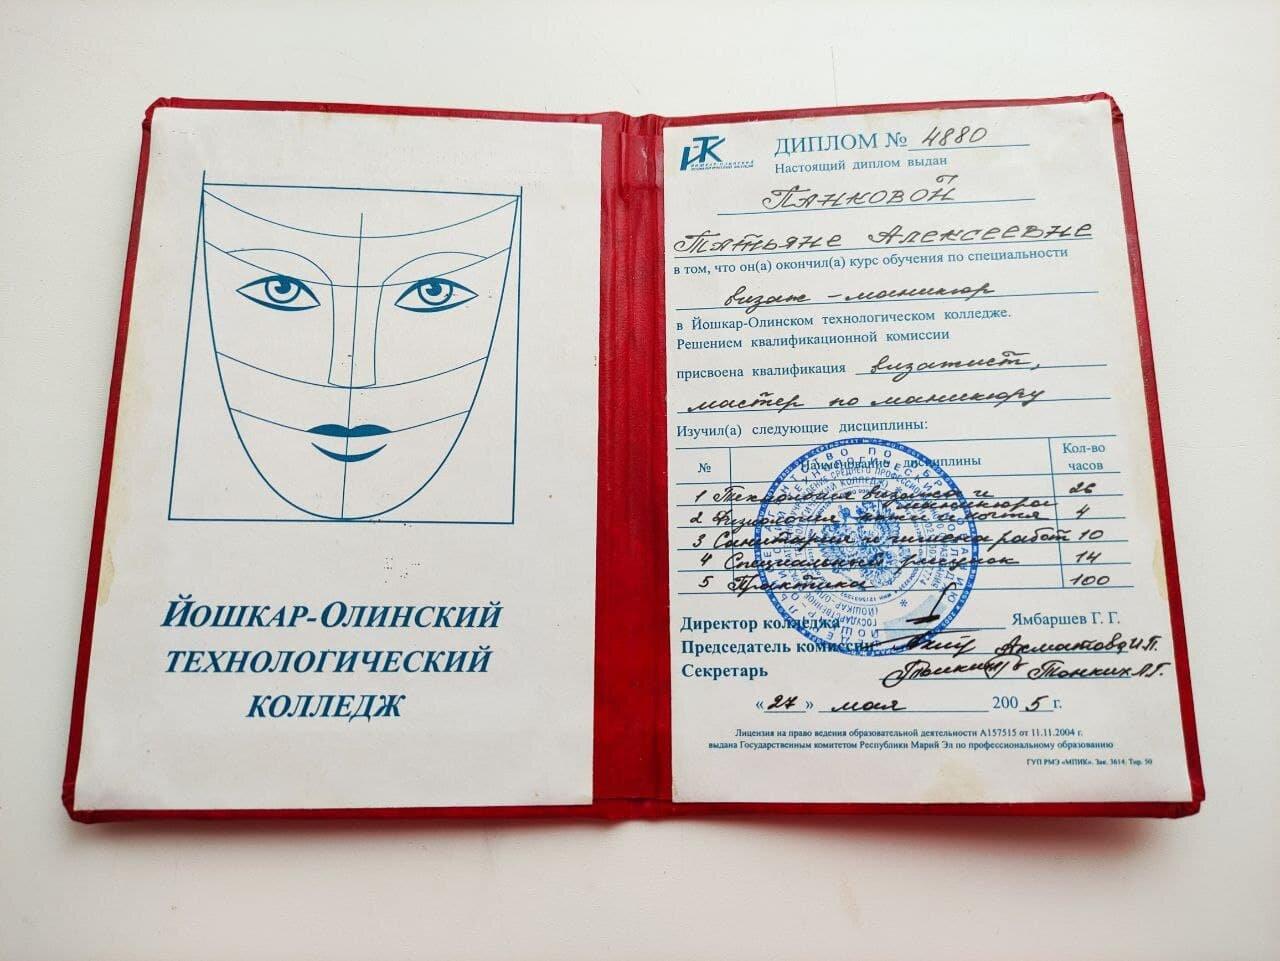 ЙОШКАР-ОЛИНСКИЙ
ТЕХНОЛОГИЧЕСКИЙ
КОЛЛЕДЖ
ДИПЛОМ № 4880
Настоящий диплом выдан
Панковой
Татьяне Алексеевне
в том, что он(а) окончил(а) курс обучения по специальности
визаж - маникюр
в Йошкар-Олинском технологическом колледже.
Решением квалификационной комиссии
присвоена квалификация визажист,
мастер по маникюру
Изучил(а) следующие дисциплины:
№ Наименование дисциплины Кол-во часов
1 Технология визажа и маникюра 26
2 Физиология кожи и ногтя 4
3 Санитария и гигиена работ 10
4 Специальный рисунок 14
5 Практика 100
Директор колледжа Ямбаршев Г. Г.
Председатель комиссии Ахматова И.П.
Секретарь Тонких Л.Г.
«27» мая 2005 г.
Лицензия на право ведения образовательной деятельности А157515 от 11.11.2004 г.
выдана Государственным комитетом Республики Марий Эл по профессиональному образованию
ГУП РМЭ «МПИК». Зак. 3614. Тир. 50